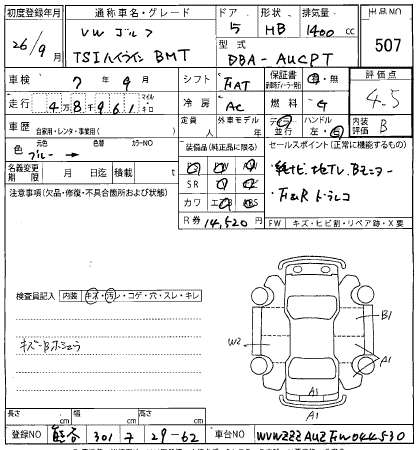 初度登録年月 通称車名・グレード ドア 形状 排気量 出品NO
26/9月 VW ゴルフ 5 HB 1400 cc 507
TSIハイライン BMT 型式 DBA-AUCPT
車検 7年9月 シフト 保証書 有・無 評価点
走行 4万8千961 マイル キロ 冷房 AC 燃料 4-5
車歴 自家用・レンタ・事業用( ) 定員 人 外車モデル 年 ディーラー 並行 ハンドル 左 右 内装評価 B
色 元色 色替 カラーNO
ブルー → 装備品(純正品に限る) セールスポイント(正常に機能するもの)
名義変更期限 月 日迄 積載 t SR 純ナビ、地TV、Bモニター
注意事項(欠品・修復・不具合箇所および状態) カワ F&R ドラレコ
R券 14,520円 FW キズ・ヒビ割・リペア跡・X要
検査員記入 内装 キズ・汚レ・コゲ・穴・スレ・キレ
キズ・Bホショウ
B1
W2
A1
A1
A1
長さ cm 幅 cm 高さ cm
登録NO 熊谷 301 フ 29-62 車台NO WVWZZZAUZFW044530